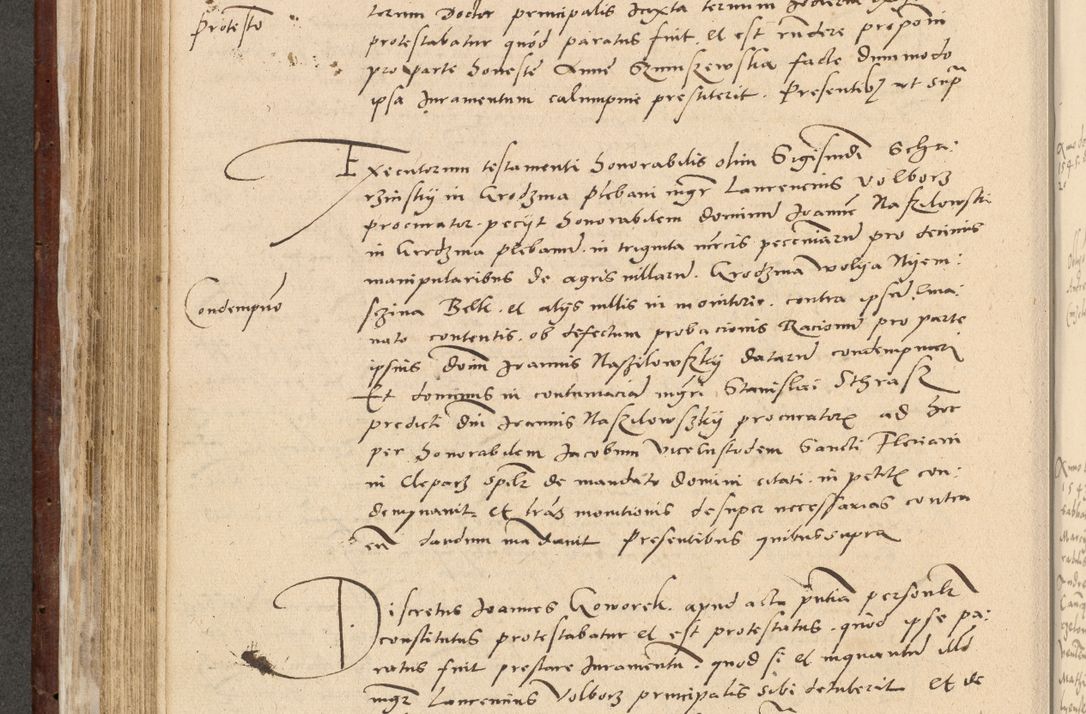 Protesto
torum Doctor principalis Juxta
protestabatur quod paratus fuit. et est rundere proponi
pro parte honeste Anne Szumszewskia facte dummodo
ipsa Juramentum calumpnie prestiterit. Presentibus ut supra
Executorum testamenti honorabilis olim Sigismundi Scha:
rzinskij in Grodzina plebani mgr Laurencius Volborz
procurator. petijt honorabilem dominum Joannem Naszilowski
in Grodzina plebanum. in triginta mrcis pecuniarum pro decimis
manipularibus de agris villarum. Grodzina wolija Nijem:
Condempno
sczina Belk. et alijs villis in monitorio. contra ipsum ema:
nato contentis. ob defectum probacionis Racionum pro parte
ipsius domini Joannis Naszilowszkij datarum condempnari
Et dominus in contumaciam mgri Stanislai Sthrasz
predicti dni Joannis Naszilowszkij procuratoris ad hoc
per honorabilem Jacobum vicecustodem Sancti Floriani
in Cleparz de mandato domini citati. in petitis con:
dempnavit et lras monitionis desuper necessarias contra
eum dandum mandavit Presentibus quibus supra
Discretus Joannes Goworek. apud acta pntia personlr
constitutus protestabatur et est protestatus. quod ipse pa:
ratus fuit prestare Juramentum. quod si et inquantum illd
mgr Laurencius Volborz principalis sibi detulerit Et de